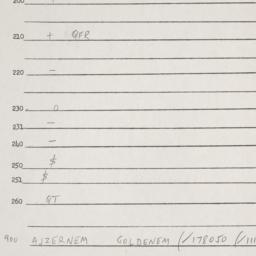 200
210 + QFR
220 -
230 0
231 -
240 -
250 $
251 $
260 QT
900 AJZERNEM GOLDENEM (/178050 (/111